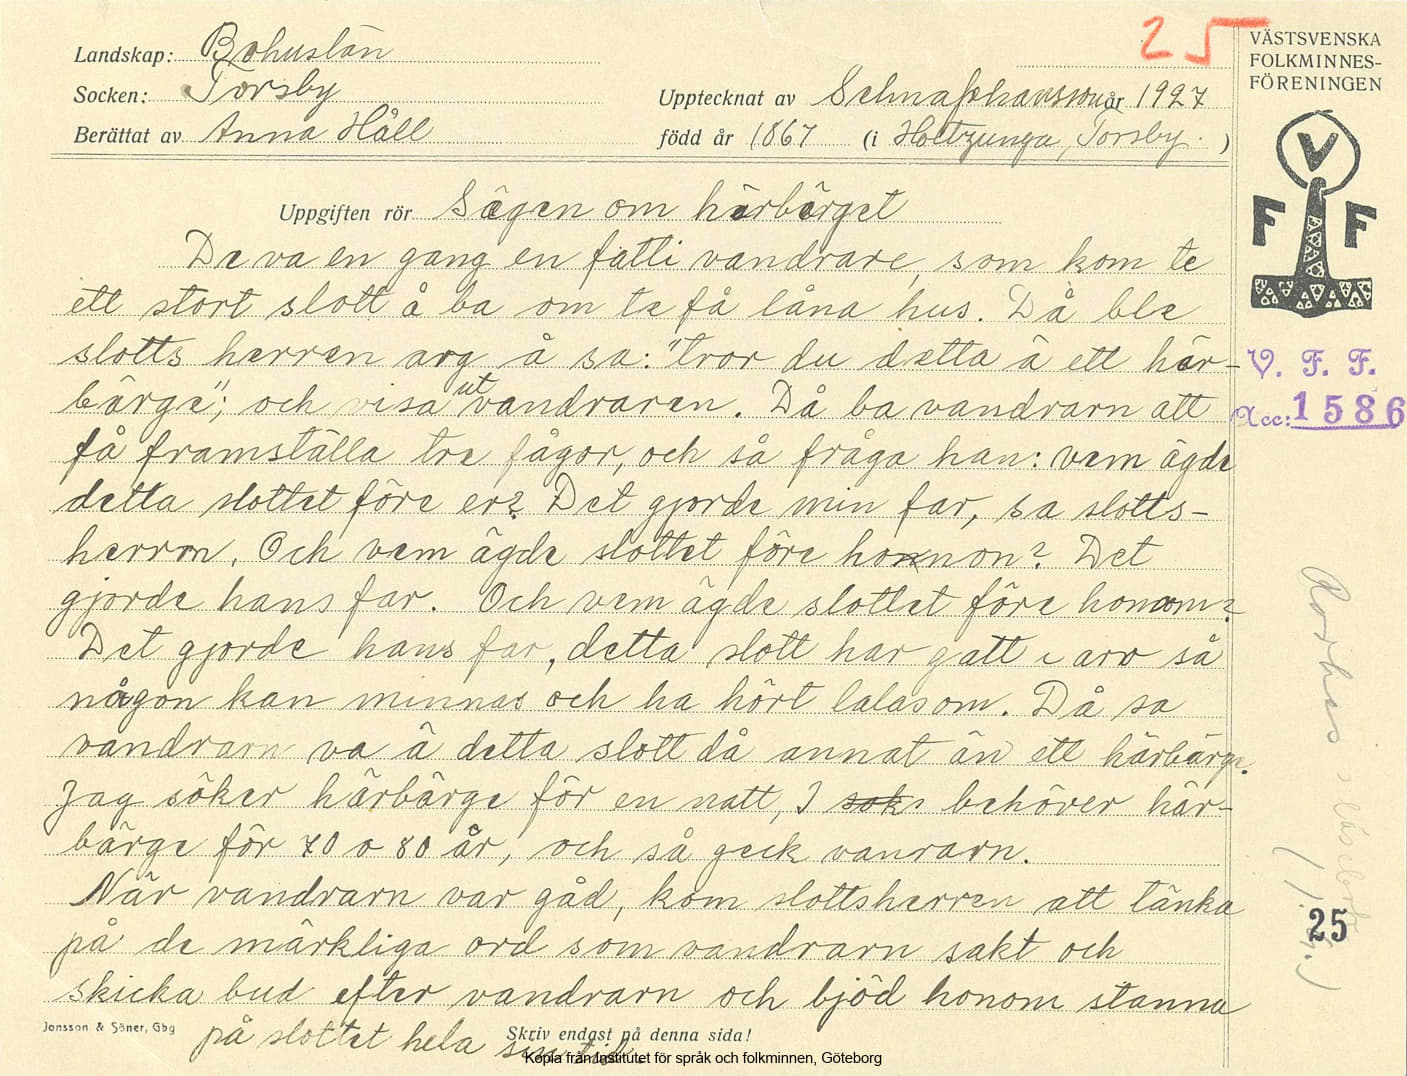 25
VÄSTSVENSKA
FOLKMINNES-
FÖRENINGEN
Landskap: Bohuslän
Socken: Torsby
Upptecknat av Selma Johansson år 1927
Berättat av Anna Häll född år 1867 (i Holtzunga, Torsby. )
V
F F
Uppgiften rör Sägen om härbärget
De va en gang en fatti vandrare, som kom te
ett stort slott å ba om te få låna hus. Då ble
slotts herren arg å sa: "tror du detta ä ett här-
bärge"; och visa ut vandraren. Då ba vandrarn att
få framställa tre fågor, och så fråga han: vem ägde
detta slottet före er? Det gjorde min far, sa slotts-
herrn. Och vem ägde slottet före honnon? Det
gjorde hans far. Och vem ägde slottet före honom?
Det gjorde hans far, detta slott har gatt i arv så
någon kan minnas och ha hört talas om. Då sa
vandrarn va ä detta slott då annat än ett härbärge.
Jag söker härbärge för en natt, I behöver här-
bärge för 70 o 80 år, och så geck vanrarn.
När vandrarn var gåd, kom slottsherren att tänka
på de märkliga ord som vandrarn sakt och
skicka bud efter vandrarn och bjöd honom stanna
på slottet hela sin tid.
V. F. F.
Acc: 1586
25
Jonsson & Söner, Gbg
Skriv endast på denna sida!
Kopia från Institutet för språk och folkminnen, Göteborg